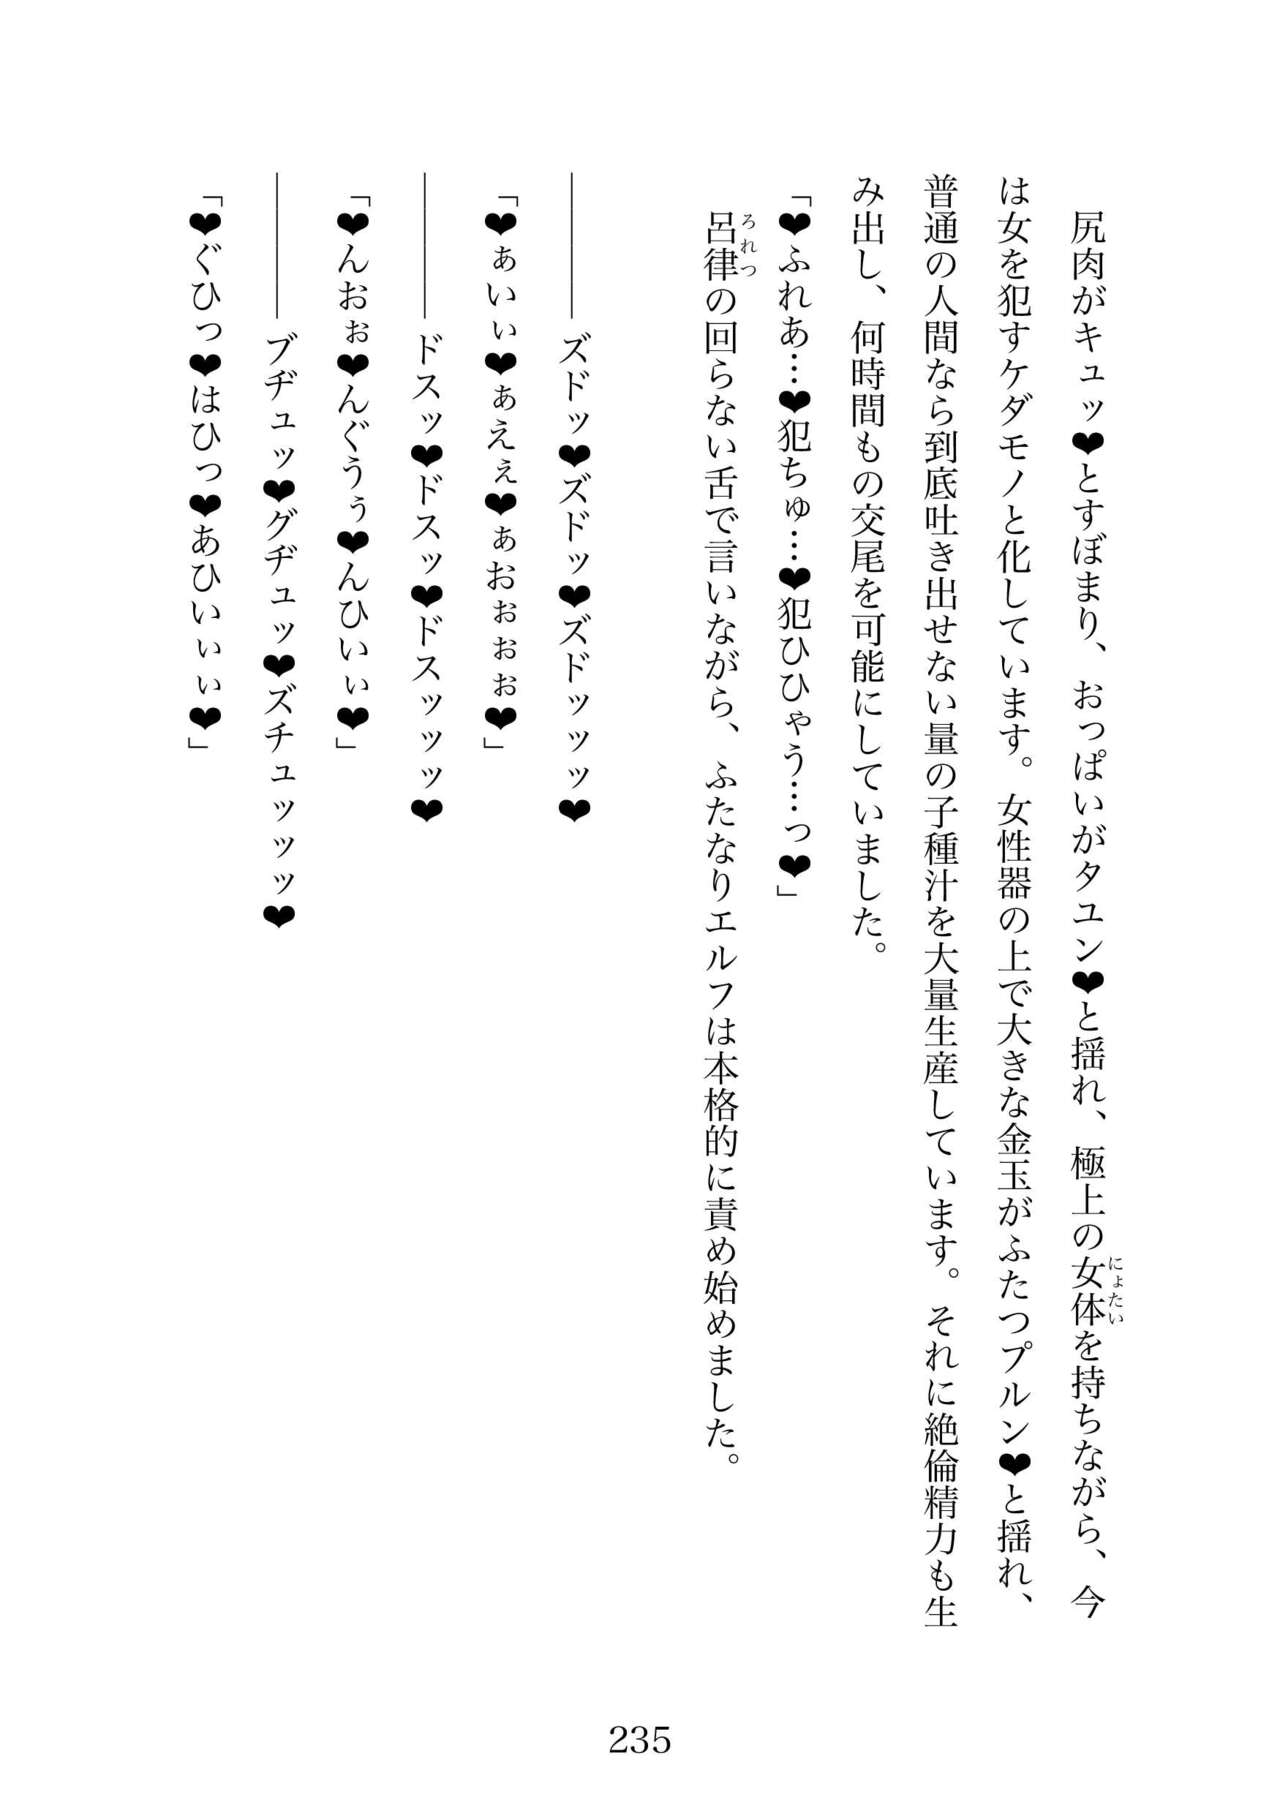 尻肉がキュッ❤とすぼまり、おっぱいがタユン❤と揺れ、極上の女体を持ちながら、今
は女を犯すケダモノと化しています。女性器の上で大きな金玉がふたつプルン❤と揺れ、
普通の人間なら到底吐き出せない量の子種汁を大量生産しています。それに絶倫精力も生
み出し、何時間もの交尾を可能にしていました。
「❤ふれあ…❤犯ちゅ…❤犯ひひゃう…っ❤」
呂律の回らない舌で言いながら、ふたなりエルフは本格的に責め始めました。
――――ズドッ❤ズドッ❤ズドッッッ❤
「❤ぁいぃ❤ぁえぇ❤ぁおぉぉぉ❤」
――――ドスッ❤ドスッ❤ドスッッッ❤
「❤んおぉ❤んぐうぅ❤んひいぃ❤」
――――ブヂュッ❤グヂュッ❤ズチュッッッ❤
「❤ぐひっ❤はひっ❤あひいぃぃ❤」
235